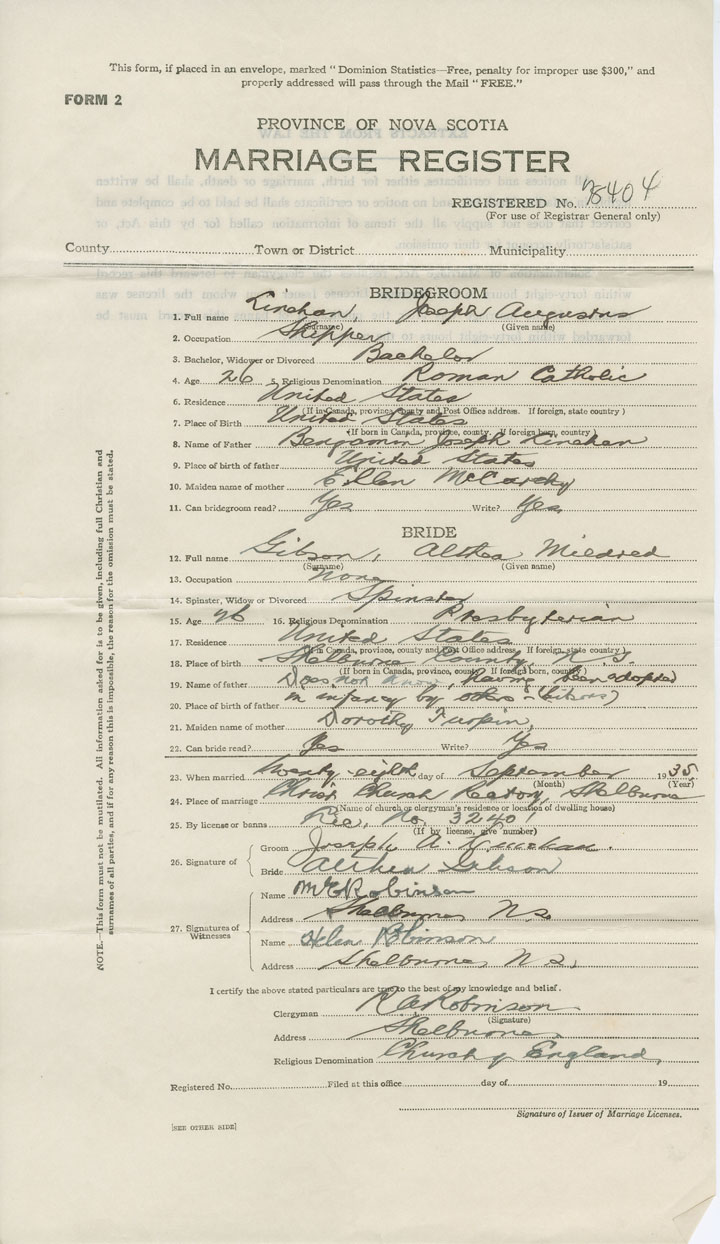 This form, if placed in an envelope, marked "Dominion Statistics—Free, penalty for improper use $300," and
properly addressed will pass through the Mail "FREE."
FORM 2
PROVINCE OF NOVA SCOTIA
MARRIAGE REGISTER
REGISTERED No. 78404
(For use of Registrar General only)
County Town or District Municipality
BRIDEGROOM
1. Full name Linehan, Joseph Augustus
(Surname) (Given name)
2. Occupation Skipper
3. Bachelor, Widower or Divorced Bachelor
4. Age 26 5. Religious Denomination Roman Catholic
6. Residence United States
(If in Canada, province, county and Post Office address. If foreign, state country)
7. Place of Birth United States
(If born in Canada, province, county. If foreign born, country)
8. Name of Father Benjamin Joseph Linehan
9. Place of birth of father United States
10. Maiden name of mother Ellen McCarthy
11. Can bridegroom read? Yes Write? Yes
BRIDE
12. Full name Gibson, Althea Mildred
(Surname) (Given name)
13. Occupation None
14. Spinster, Widow or Divorced Spinster
15. Age 26 16. Religious Denomination Presbyterian
17. Residence United States
(If in Canada, province, county and Post Office address. If foreign, state country)
18. Place of birth Shelburne County, N.S.
(If born in Canada, province, county. If foreign born, country)
19. Name of father Does not know, having been adopted
20. Place of birth of father in infancy by others - (Gibsons)
21. Maiden name of mother Dorothy Turpin
22. Can bride read? Yes Write? Yes
23. When married twenty-eighth day of September 1935
(Month) (Year)
24. Place of marriage Christ Church Rectory, Shelburne
(Name of church or clergyman's residence or location of dwelling house)
25. By license or banns Lic. No. 32401
(If by license, give number)
26. Signature of Groom Joseph A. Linehan.
Bride Althea Gibson
27. Signatures of Witnesses
Name M E Robinson
Address Shelburne N S.
Name Helen Robinson
Address Shelburne, N.S.
I certify the above stated particulars are true to the best of my knowledge and belief.
Clergyman R A Robinson
(Signature)
Address Shelburne
Religious Denomination Church of England
Registered No. Filed at this office day of 19
Signature of Issuer of Marriage Licenses.
[SEE OTHER SIDE]
NOTE.—This form must not be mutilated. All information asked for is to be given, including full Christian and
surnames of all parties, and if for any reason this is impossible, the reason for the omission must be stated.